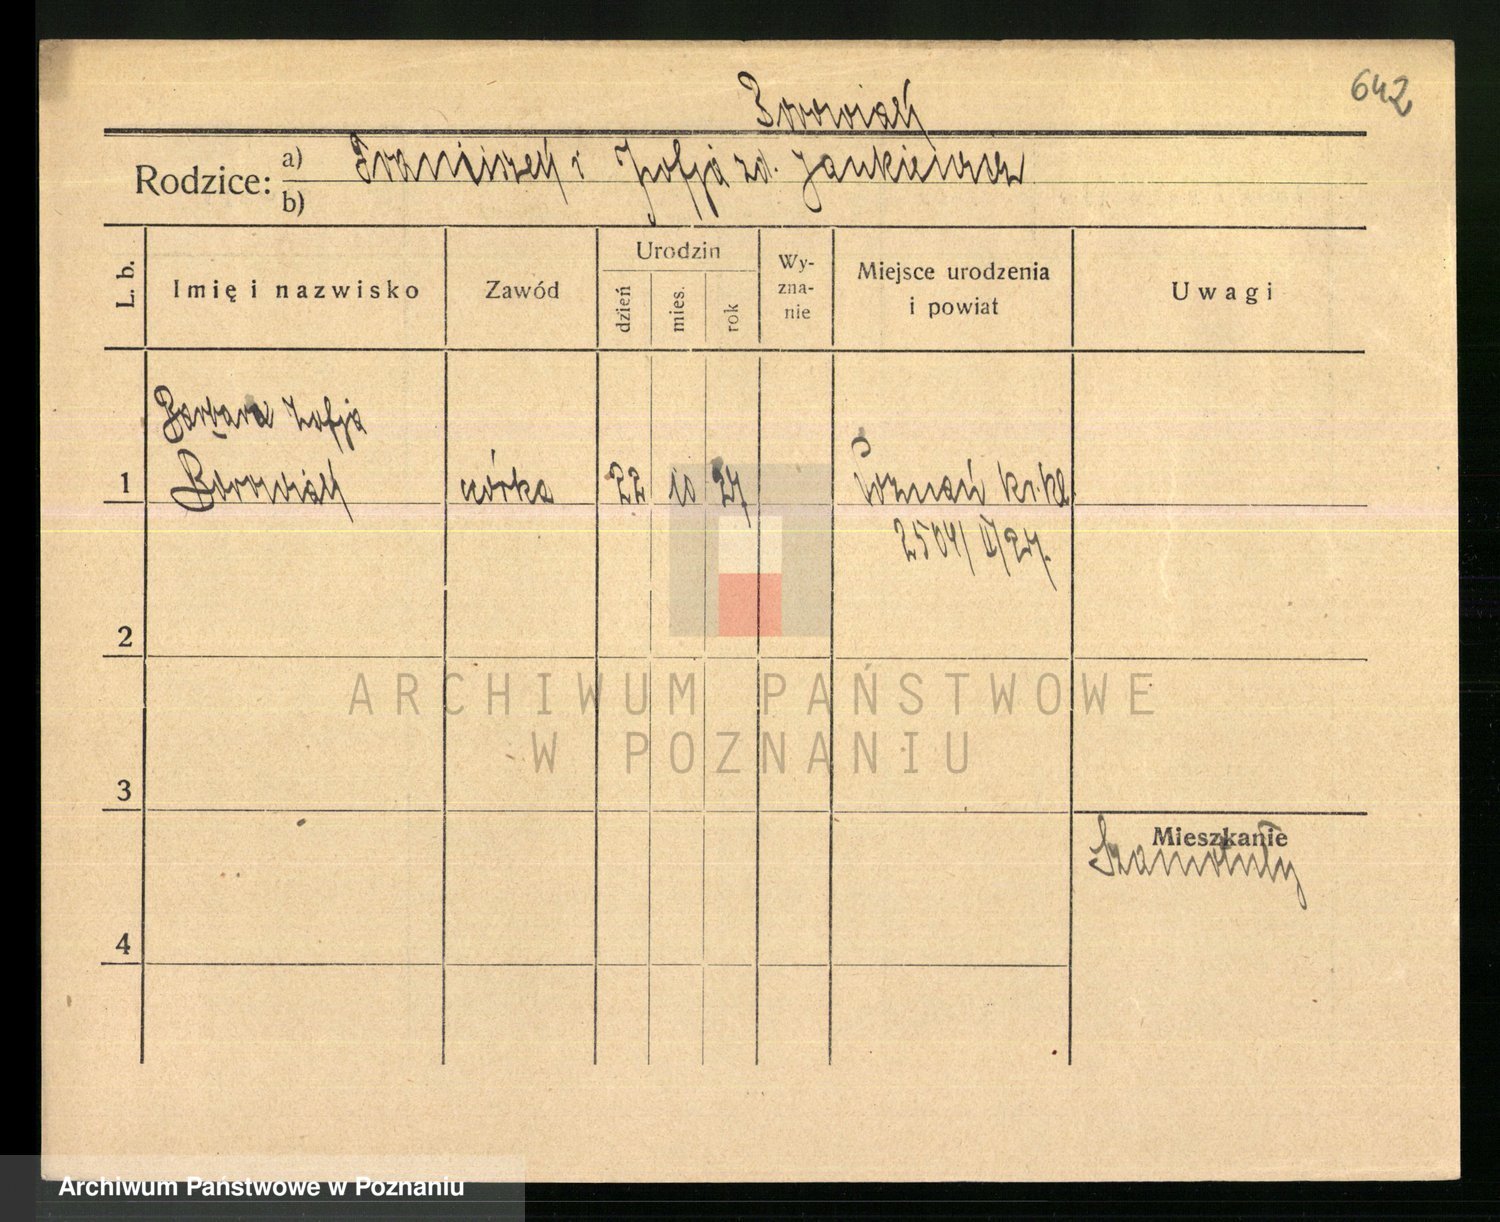 642
Borowiak
Rodzice: a) Franciszek i Zofja zd. Jankiewicz
b)
L. b.
Imię i nazwisko
Zawód
Urodzin
dzień
mies.
rok
Wy-
zna-
nie
Miejsce urodzenia
i powiat
Uwagi
Barbara Zofja
1 Borowiak córka 22 10 27 Poznań
2504/ 27.
2
ARCHIWUM PAŃSTWOWE
W POZNANIU
3
Mieszkanie
Szamotuły
4
Archiwum Państwowe w Poznaniu